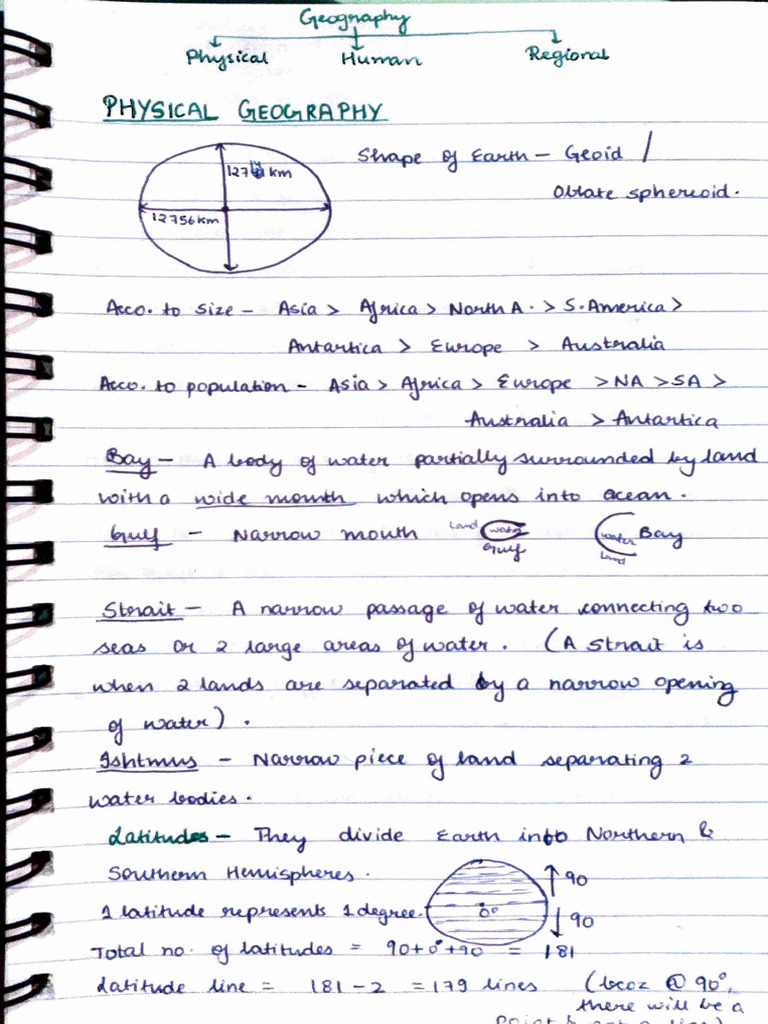 Geography
Physical Human Regional
PHYSICAL GEOGRAPHY
127 km
12756km
Shape of Earth - Geoid /
Oblate spheroid.
Acco. to size - Asia > Africa > North A. > S. America >
Antartica > Europe > Australia
Acco. to population - Asia > Africa > Europe > NA > SA >
Australia > Antartica
Bay - A body of water partially surrounded by land
with a wide mouth which opens into ocean.
Gulf - Narrow mouth Land water Gulf water Bay Land
Strait - A narrow passage of water connecting two
seas or 2 large areas of water. (A Strait is
when 2 lands are separated by a narrow opening
of water).
Ishtmus - Narrow piece of land separating 2
water bodies.
Latitudes - They divide Earth into Northern &
Southern Hemispheres.
90
1 latitude represents 1 degree. 0° 90
Total no. of latitudes = 90+0°+90 = 181
Latitude line = 181-2 = 179 lines (bcoz @ 90°,
there will be a
point & not a line)